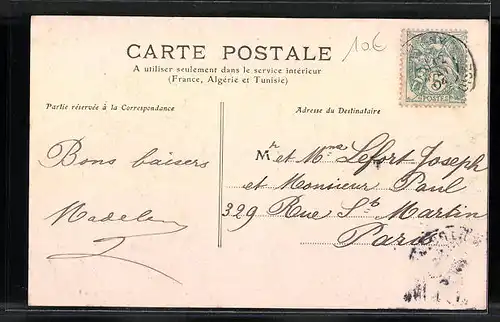 10€
CARTE POSTALE
A utiliser seulement dans le service intérieur
(France, Algérie et Tunisie)
Partie réservée à la Correspondance
Adresse du Destinataire
POSTES
Bons baisers
Madelen
Mr et Mme Lefort Joseph
et Monsieur Paul
329 Rue St Martin
Paris